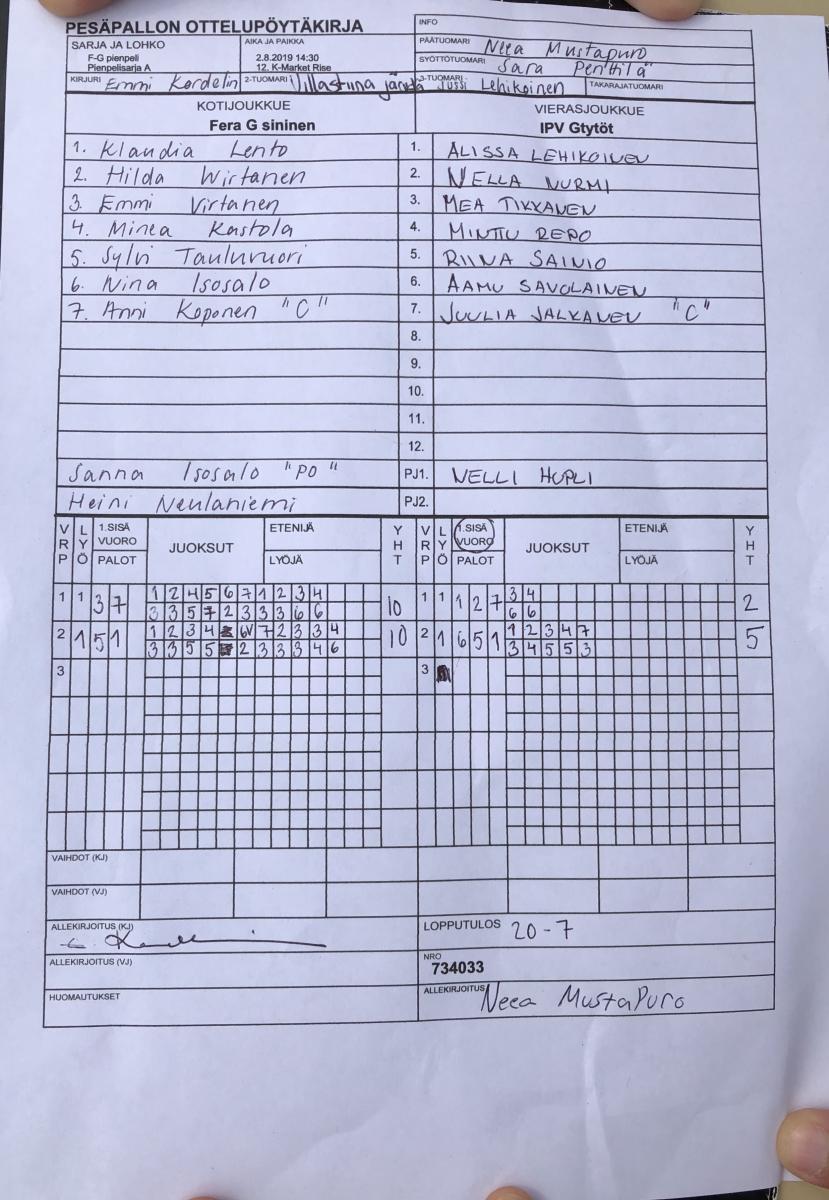 PESÄPALLON OTTELUPÖYTÄKIRJA
INFO
SARJA JA LOHKO
F-G pienpeli
Pienpelisarja A
AIKA JA PAIKKA
2.8.2019 14:30
12. K-Market Rise
PÄÄTUOMARI Neea Mustapuro
SYÖTTÖTUOMARI Sara Penttilä
KIRJURI Emmi Kordelin
2-TUOMARI
3-TUOMARI Jussi Lehikoinen
TAKARAJATUOMARI
KOTIJOUKKUE
Fera G sininen
VIERASJOUKKUE
IPV Gtytöt
1. Klaudia Lento
1. ALISSA LEHIKOINEN
2. Hilda Wirtanen
2. NELLA NURMI
3. Emmi Virtanen
3. MEA TIKKANEN
4. Minea Kastola
4. MINTTU REPO
5. Sylvi Tauluvuori
5. RIINA SAINIO
6. Nina Isosalo
6. AAMU SAVOLAINEN
7. Anni Koponen "C"
7. JUULIA JALKANEN "C"
8.
9.
10.
11.
12.
Sanna Isosalo "PO"
PJ1. NELLI HUPLI
Heini Neulaniemi
PJ2.
VRP LYÖ 1.SISÄ VUORO PALOT JUOKSUT ETENIJÄ LYÖJÄ YHT
VRP LYÖ 1.SISÄ VUORO PALOT JUOKSUT ETENIJÄ LYÖJÄ YHT
1 1 3 7 1 2 4 5 6 7 1 2 3 4 10
3 3 5 7 2 3 3 3 6 6
1 1 1 2 7 3 4 2
6 6
2 1 5 1 1 2 3 4 6V 7 2 3 3 4 10
3 3 5 5 2 3 3 3 4 6
2 1 6 5 1 1 2 3 4 7 5
3 4 5 5 3
3
3
VAIHDOT (KJ)
VAIHDOT (VJ)
ALLEKIRJOITUS (KJ)
LOPPUTULOS 20-7
ALLEKIRJOITUS (VJ)
NRO
734033
HUOMAUTUKSET
ALLEKIRJOITUS Neea MustaPuro